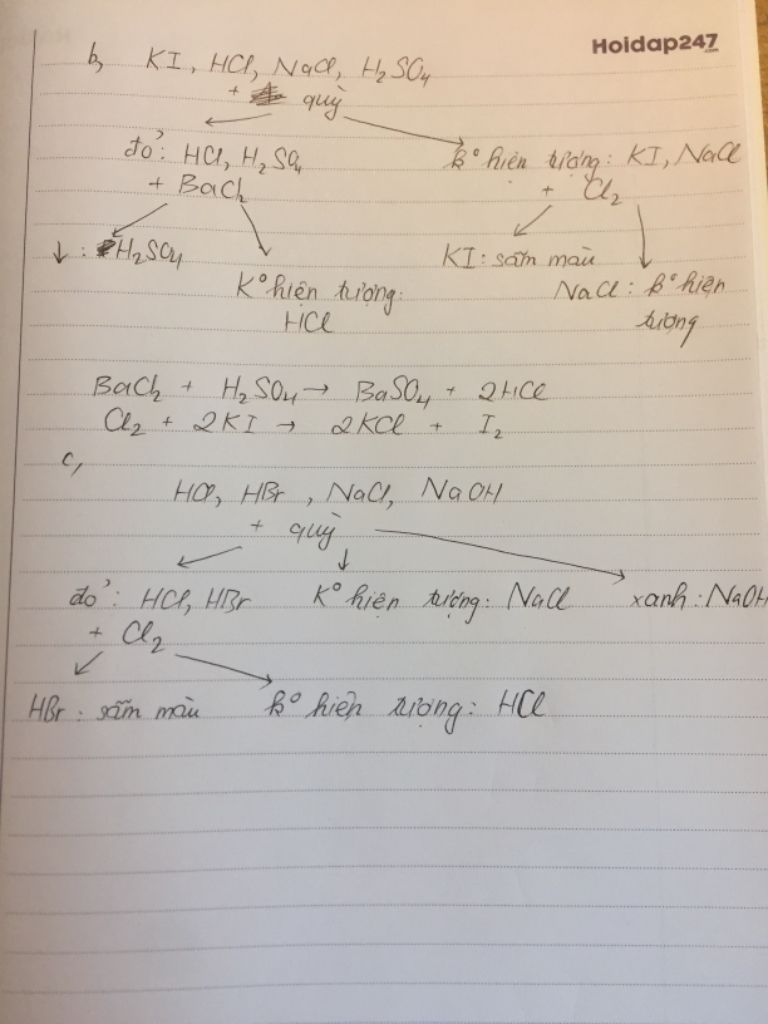 Hoidap247.com
b, KI, HCl, NaCl, H₂SO₄
+ quỳ
đỏ: HCl, H₂SO₄
k° hiện tượng: KI, NaCl
+ BaCl₂
+ Cl₂
↓: H₂SO₄
KI: sẫm màu
K° hiện tượng:
HCl
NaCl: k° hiện
tượng
BaCl₂ + H₂SO₄ → BaSO₄ + 2HCl
Cl₂ + 2KI → 2KCl + I₂
c,
HCl, HBr, NaCl, NaOH
+ quỳ
đỏ: HCl, HBr
K° hiện tượng: NaCl
xanh: NaOH
+ Cl₂
HBr: sẫm màu
k° hiện tượng: HCl